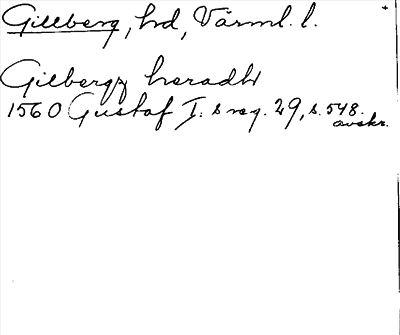 Gillberg, hd, Värml. l.
Gilbergz heradh
1560 Gustaf I:s reg. 29, s. 548.
avskr.